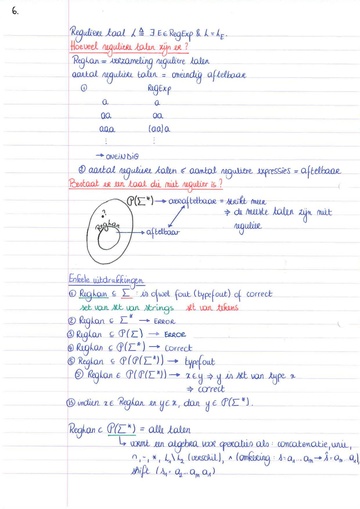 6.
Reguliere taal L ≙ ∃ E ∈ RegExp & L = L_E.
Hoeveel reguliere talen zijn er?
RegLan = verzameling reguliere talen
aantal reguliere talen = oneindig aftelbaar
① RegExp
a a
aa aa
aaa (aa)a
⋮ ⋮
→ ONEINDIG
② aantal reguliere talen ≤ aantal reguliere expressies = aftelbaar
Bestaat er en taal die niet regulier is?
P(Σ*) → overaftelbaar = strikt meer
⇒ de meeste talen zijn niet
regulier
?
Reglan
→ aftelbaar
Enkele uitdrukkingen
① Reglan ⊆ Σ : is ofwel fout (typefout) of correct
set van set van strings set van tekens
② Reglan ⊆ Σ* → ERROR
③ Reglan ⊆ P(Σ) → ERROR
④ Reglan ⊆ P(Σ*) → correct
⑤ Reglan ⊆ P(P(Σ*)) → typefout
Reglan ∈ P(P(Σ*)) → x ∈ y ⇒ y is set van type x
⇒ correct
indien x ∈ Reglan en y ∈ x, dan y ∈ P(Σ*).
Reglan ⊂ P(Σ*) = alle talen
↳ vormt een algebra voor operaties als: concatenatie, unie,
∩, -, *, L₁\L₂ (verschil),
shift